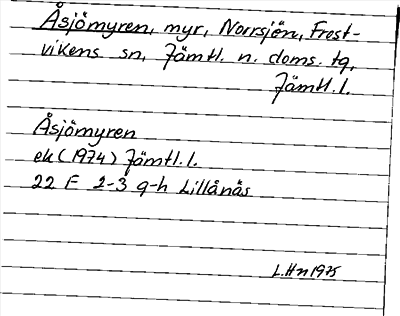 Åsjömyren, myr, Norrsjön, Frost-
vikens sn, Jämtl. n. doms. tg,
Jämtl. l.
Åsjömyren
ek (1974) Jämtl. l.
22 F 2-3 g-h Lillånäs
L.Hn 1975